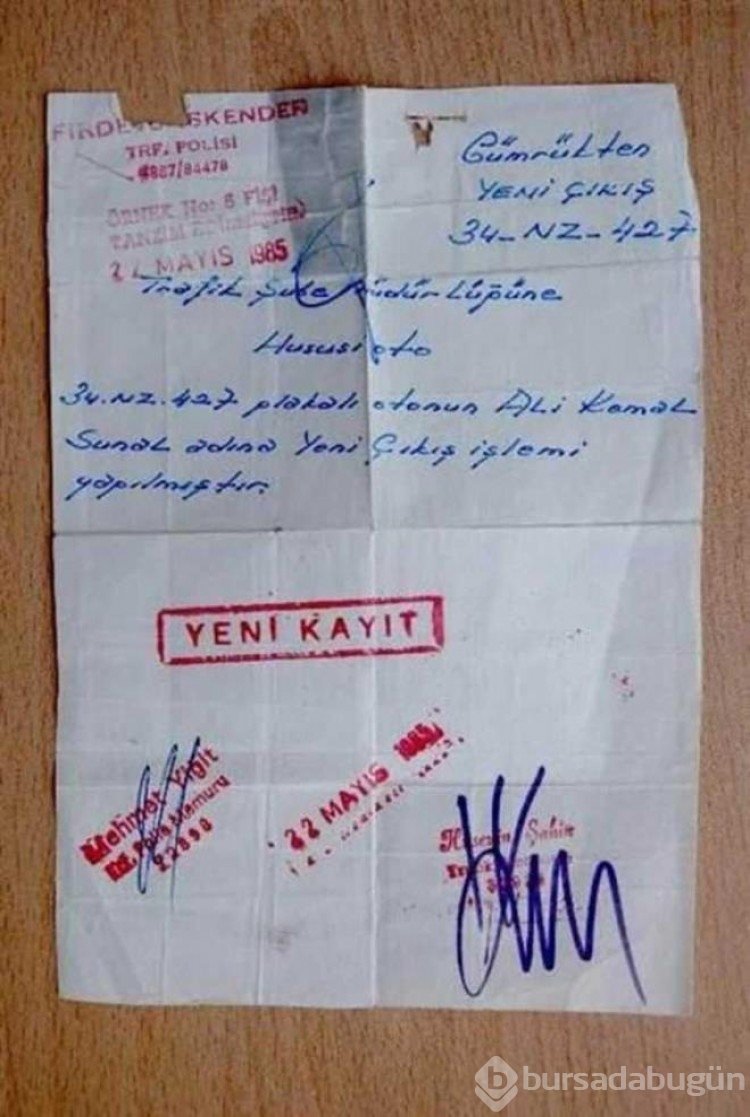 FİRDEVS İSKENDER
TRF. POLİSİ
ÖRNEK No: 6 Fişi
TANZİM
22 MAYIS 1985
Gümrükten
YENİ ÇIKIŞ
34-NZ-427
Trafik Şube Müdürlüğüne
Hususi oto
34.NZ.427 plakalı otonun Ali Kemal
Sunal adına Yeni Çıkış işlemi
yapılmıştır.
YENİ KAYIT
Mehmet Yiğit
Polis Memuru
22898
22 MAYIS 1985
Hüseyin Şahin
bursadabugün